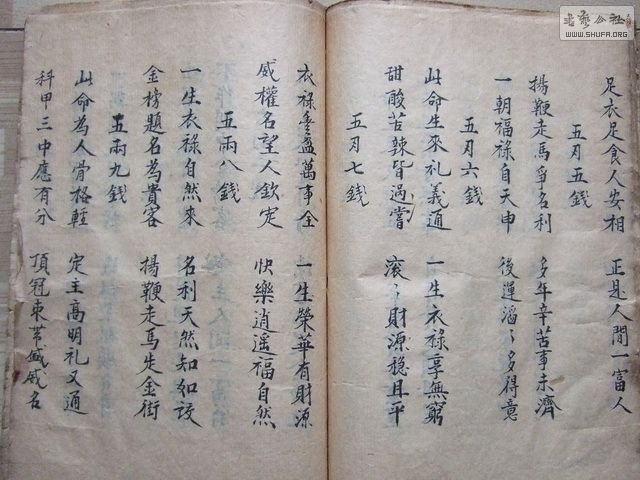 足衣足食人安相 正是人間一富人
五刄五錢
揚鞭走馬爭名利 多年辛苦事未濟
一朝福禄自天申 後運滔〻多得竟
五刄六錢
此命生來礼義通 一生衣禄享無窮
甜酸苦辣皆過嘗 滾〻財源穩且平
五刄七錢
衣禄豊盈萬事全 一生榮華有財源
威權名望人欽定 快樂逍遥福自然
五兩八錢
一生衣禄自然來 名利天然知如設
金榜題名為貴客 揚鞭走馬走金街
五兩九錢
此命為人骨格輕 定主高明礼又通
科甲三中應有分 頂冠束帶盛威名
書藝公社
WWW.SHUFA.ORG